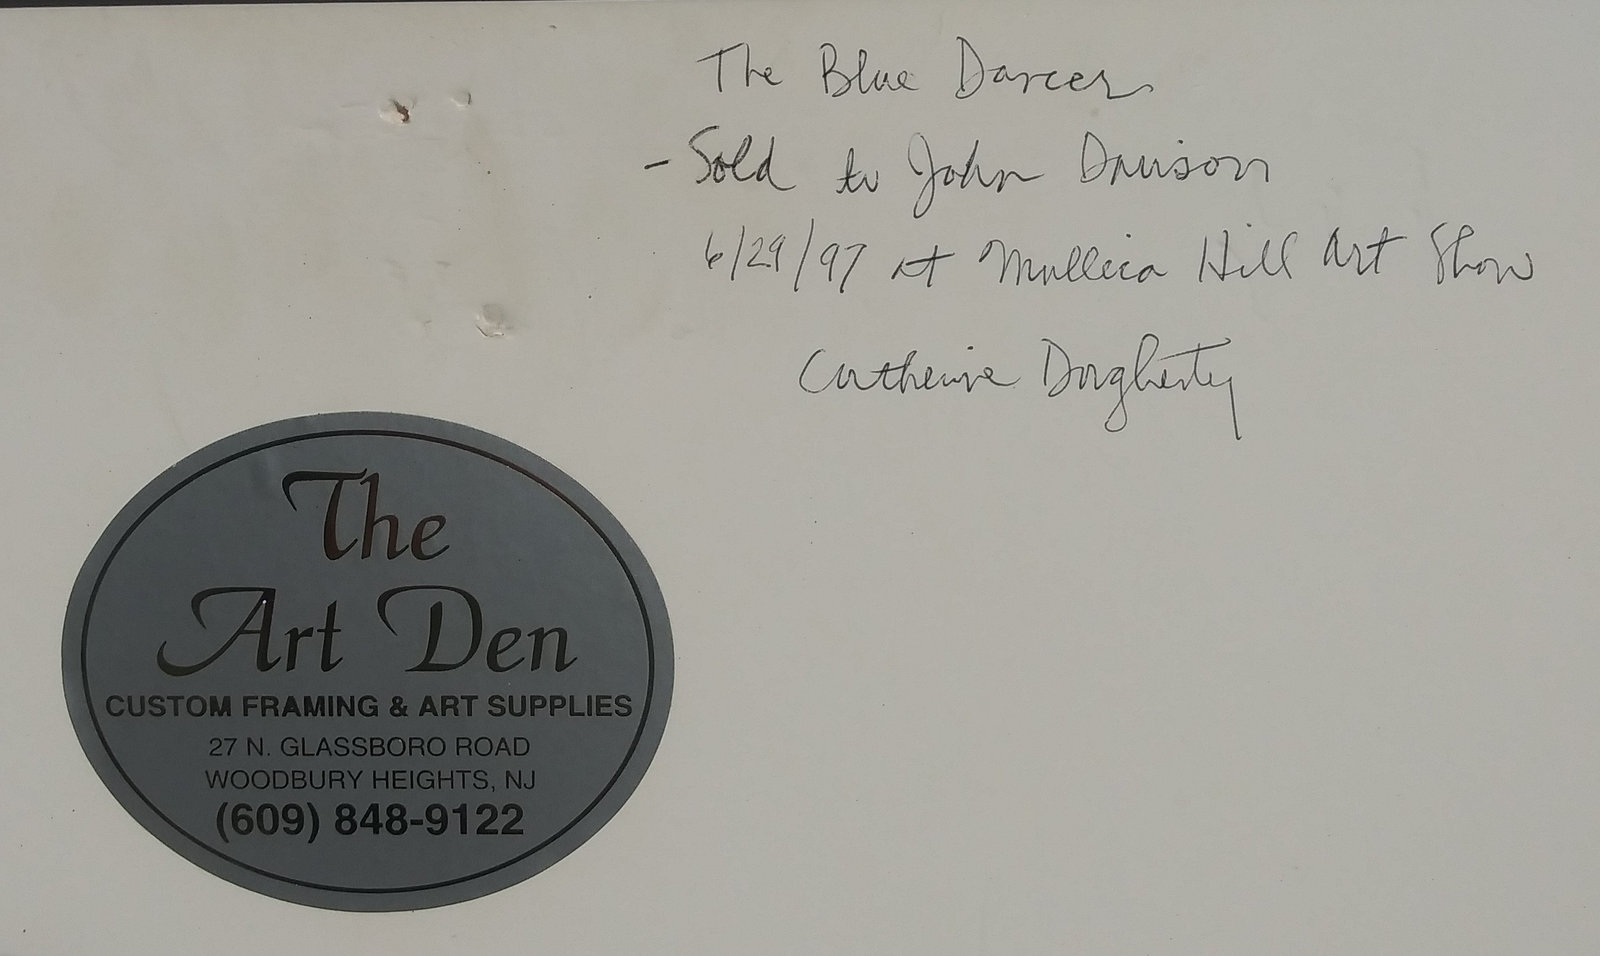 The Blue Dancer
- Sold to John Davison
6/29/97 at Mullica Hill Art Show
Catherine Dougherty
The
Art Den
CUSTOM FRAMING & ART SUPPLIES
27 N. GLASSBORO ROAD
WOODBURY HEIGHTS, NJ
(609) 848-9122